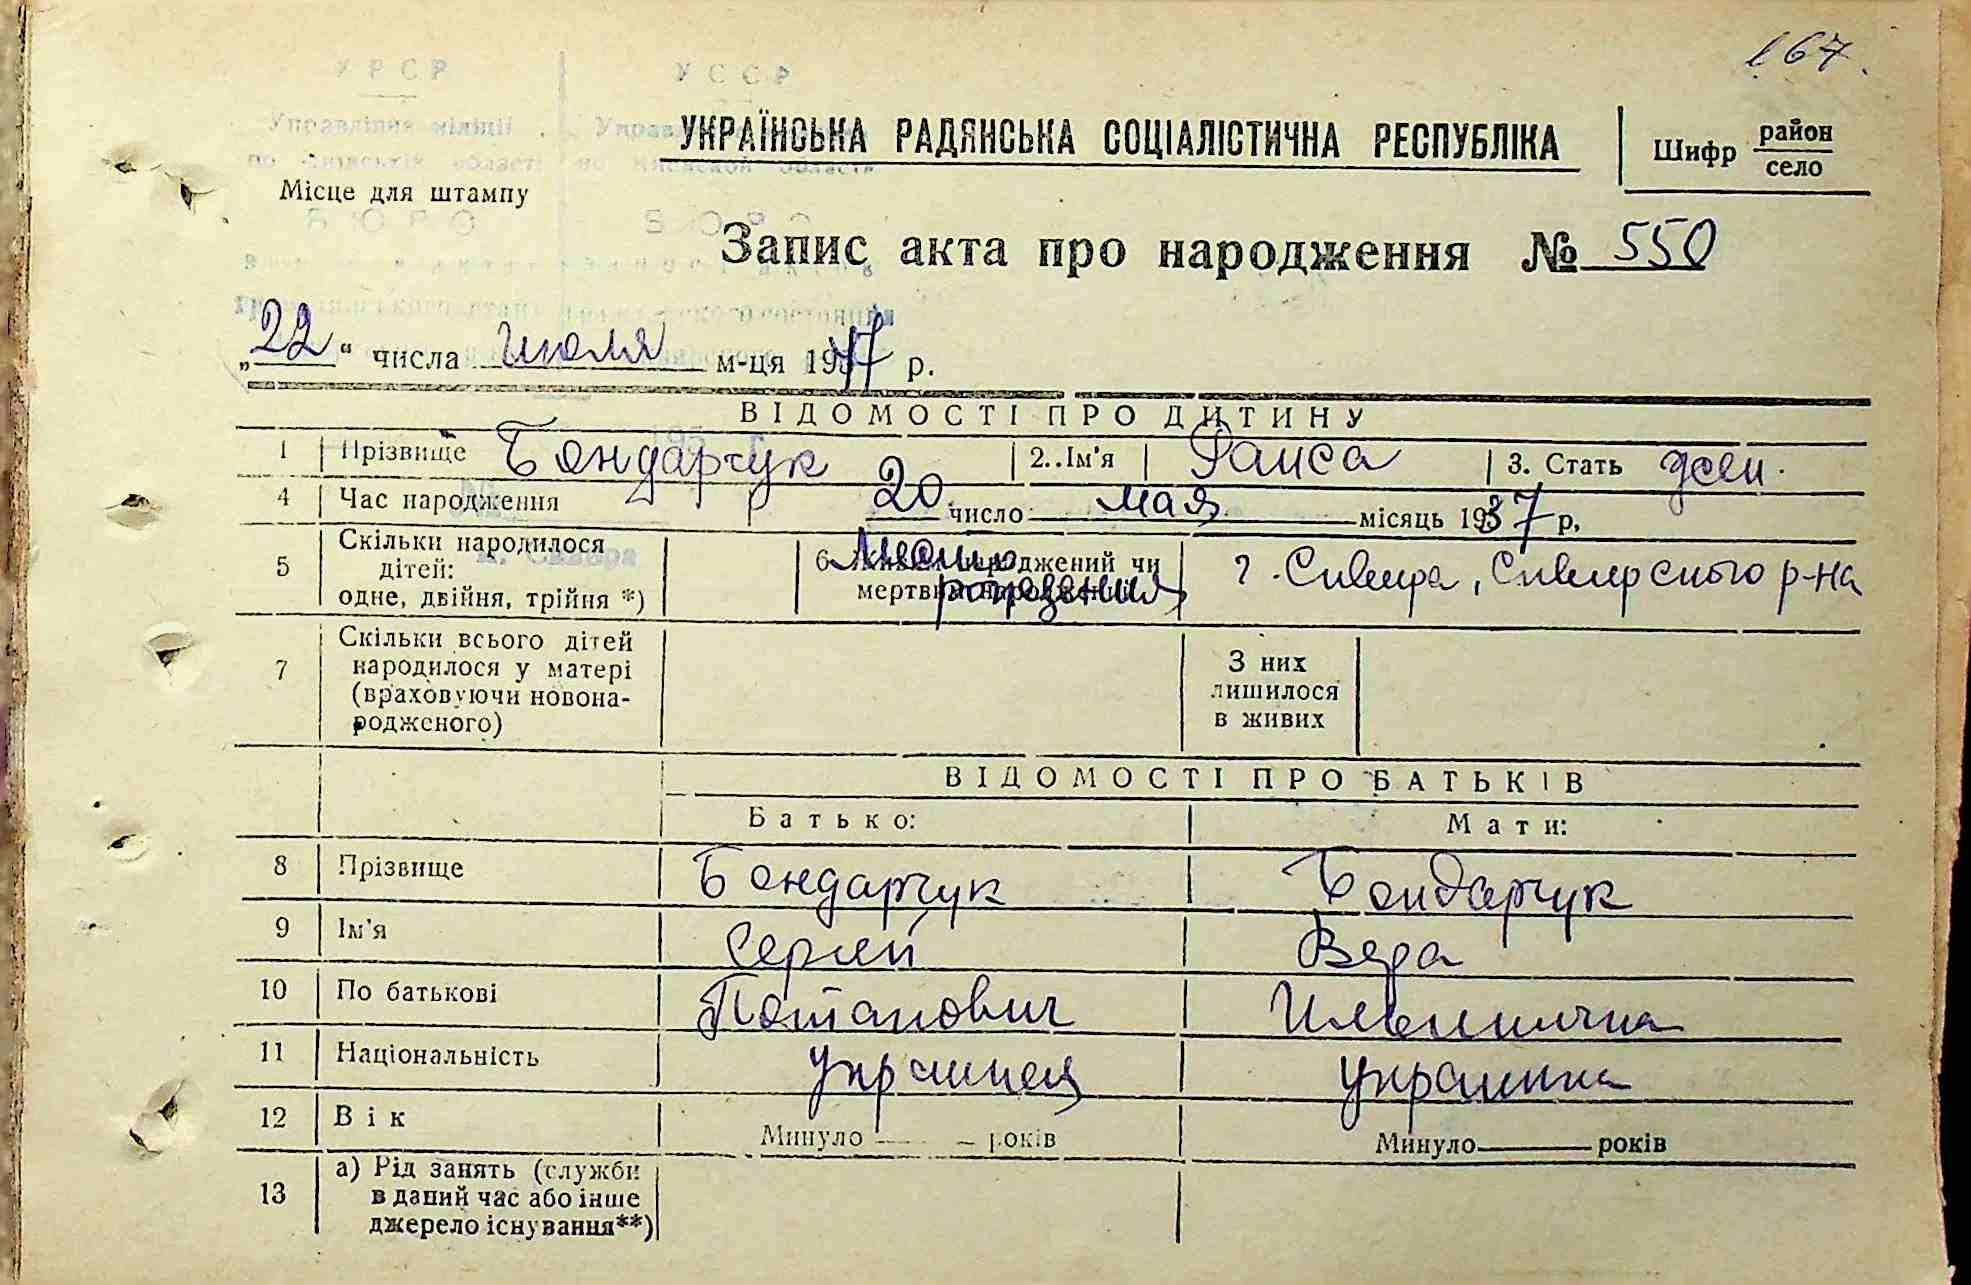 167.
УРСР УССР
УКРАЇНСЬКА РАДЯНСЬКА СОЦІАЛІСТИЧНА РЕСПУБЛІКА
Шифр район
село
Управління міліції
по Київській області по Киевской области
Місце для штампу
БЮРО БЮРО
Запис акта про народження № 550
„22“ числа июля м-ця 1947 р.
ВІДОМОСТІ ПРО ДИТИНУ
1 Прізвище Бондарчук 2. Ім'я Раиса 3. Стать жен.
4 Час народження 20 число мая місяць 1937 р.
5 Скільки народилося дітей: одне, двійня, трійня *)
6. Место рождения г. Сквира, Сквирского р-на
7 Скільки всього дітей
народилося у матері
(враховуючи новона-
родженого)
З них
лишилося
в живих
ВІДОМОСТІ ПРО БАТЬКІВ
Батько: Мати:
8 Прізвище Бондарчук Бондарчук
9 Ім'я Сергей Вера
10 По батькові Потапович Ильинична
11 Національність украинец украинка
12 Вік Минуло — років Минуло — років
13 а) Рід занять (служби
в даний час або інше
джерело існування**)